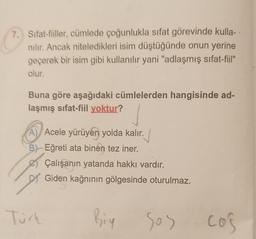 7. Sıfat-fiiller, cümlede çoğunlukla sıfat görevinde kulla-
nılır. Ancak niteledikleri isim düştüğünde onun yerine
geçerek bir isim gibi kullanılır yani "adlaşmış sıfat-fiil"
olur.
Buna göre aşağıdaki cümlelerden hangisinde ad-
laşmış sıfat-fiil yoktur?
A) Acele yürüyen yolda kalır.
B) Eğreti ata binen tez iner.
C) Çalışanın yatanda hakkı vardır.
D) Giden kağnının gölgesinde oturulmaz.
Türk Biy Sos Coğ